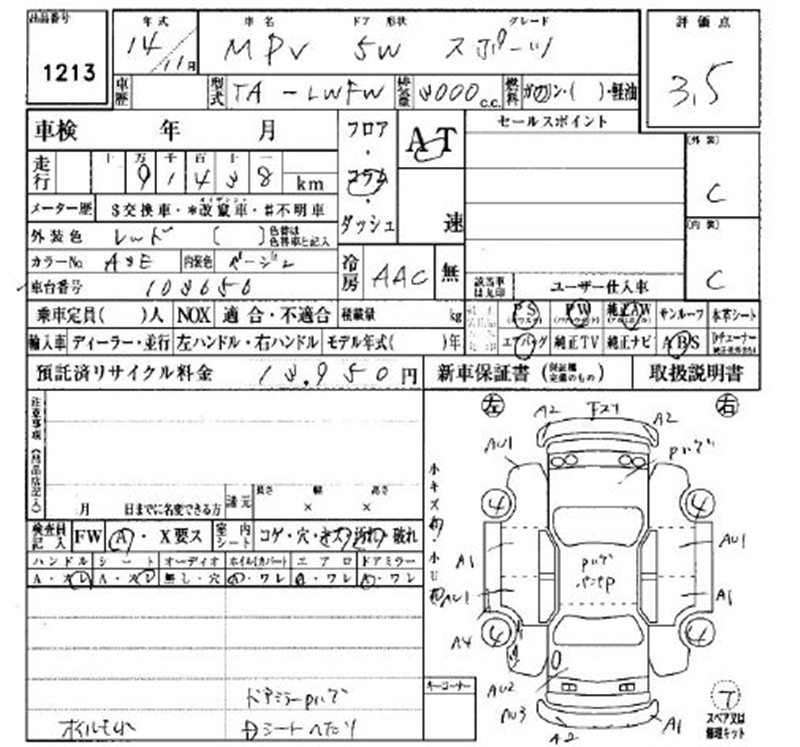 出品番号
1213
年式
14/11月
車名 ドア 形状 グレード
MPV 5W スポーツ
評価点
3.5
車歴
型式 TA-LWFW
排気量 3000 c.c.
燃料 ガソリン・( )・軽油
車検 年 月
走行 十 万 千 百 十 一
91438 km
メーター歴 $交換車・*改竄車・#不明車
外装色 レッド ( ) 色替は色替車と記入
カラーNo. A3E 内装色 ベージュ
車台番号 103650
フロア・コラム・ダッシュ
AT
速
冷房 AAC 無
セールスポイント
該当車は丸印 ユーザー仕入車
(外装) C
(内装) C
乗車定員( )人 NOX 適合・不適合 積載量 kg
PS PW 純正AW サンルーフ 本革シート
輸入車 ディーラー・並行 左ハンドル・右ハンドル モデル年式( )年
エアバッグ 純正TV 純正ナビ ABS
預託済リサイクル料金 13,950円
新車保証書 取扱説明書
注意事項(出品店記入)
月 日までに名変できる方
諸元 長さ × 幅 × 高さ
検査員記入 FW A・X要ス
室内シート コゲ・穴・キズ・汚れ・破れ
ハンドル シート オーディオ ホイル(カバー) エアロ ドアミラー
A・スレ A・スレ 無し・穴 A・ワレ A・ワレ A・ワレ
ドアミラーハゲ
オイルもれ
シートへたり
左 右
A2 下スリ A2
AU1 ハゲ
小キズ有
小U有
4 4
A1 AU1
ハゲ
AU1 A1
4 4
A4
AU2
AU3
A2 A1
キーコーナー
T
スペア又は修理キット